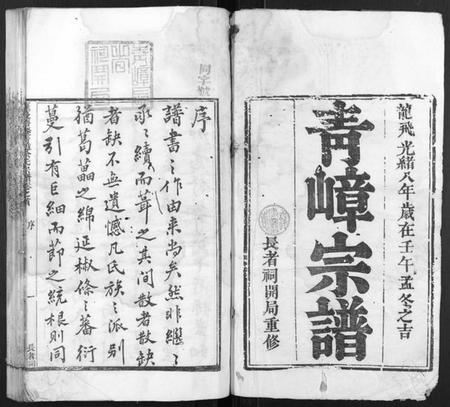 龍飛光緒八年歲在壬午孟冬之吉
青嶂宗譜
長者祠開局重修
序
譜書之作由来尚矣然非繼繼
承承續而葺之其間散者散缺
者缺不無遺憾凡氏族之派别
猶葛藟之綿延椒條之蕃衍
蔓引有巨細而莭之統根則同
序
一
長者祠